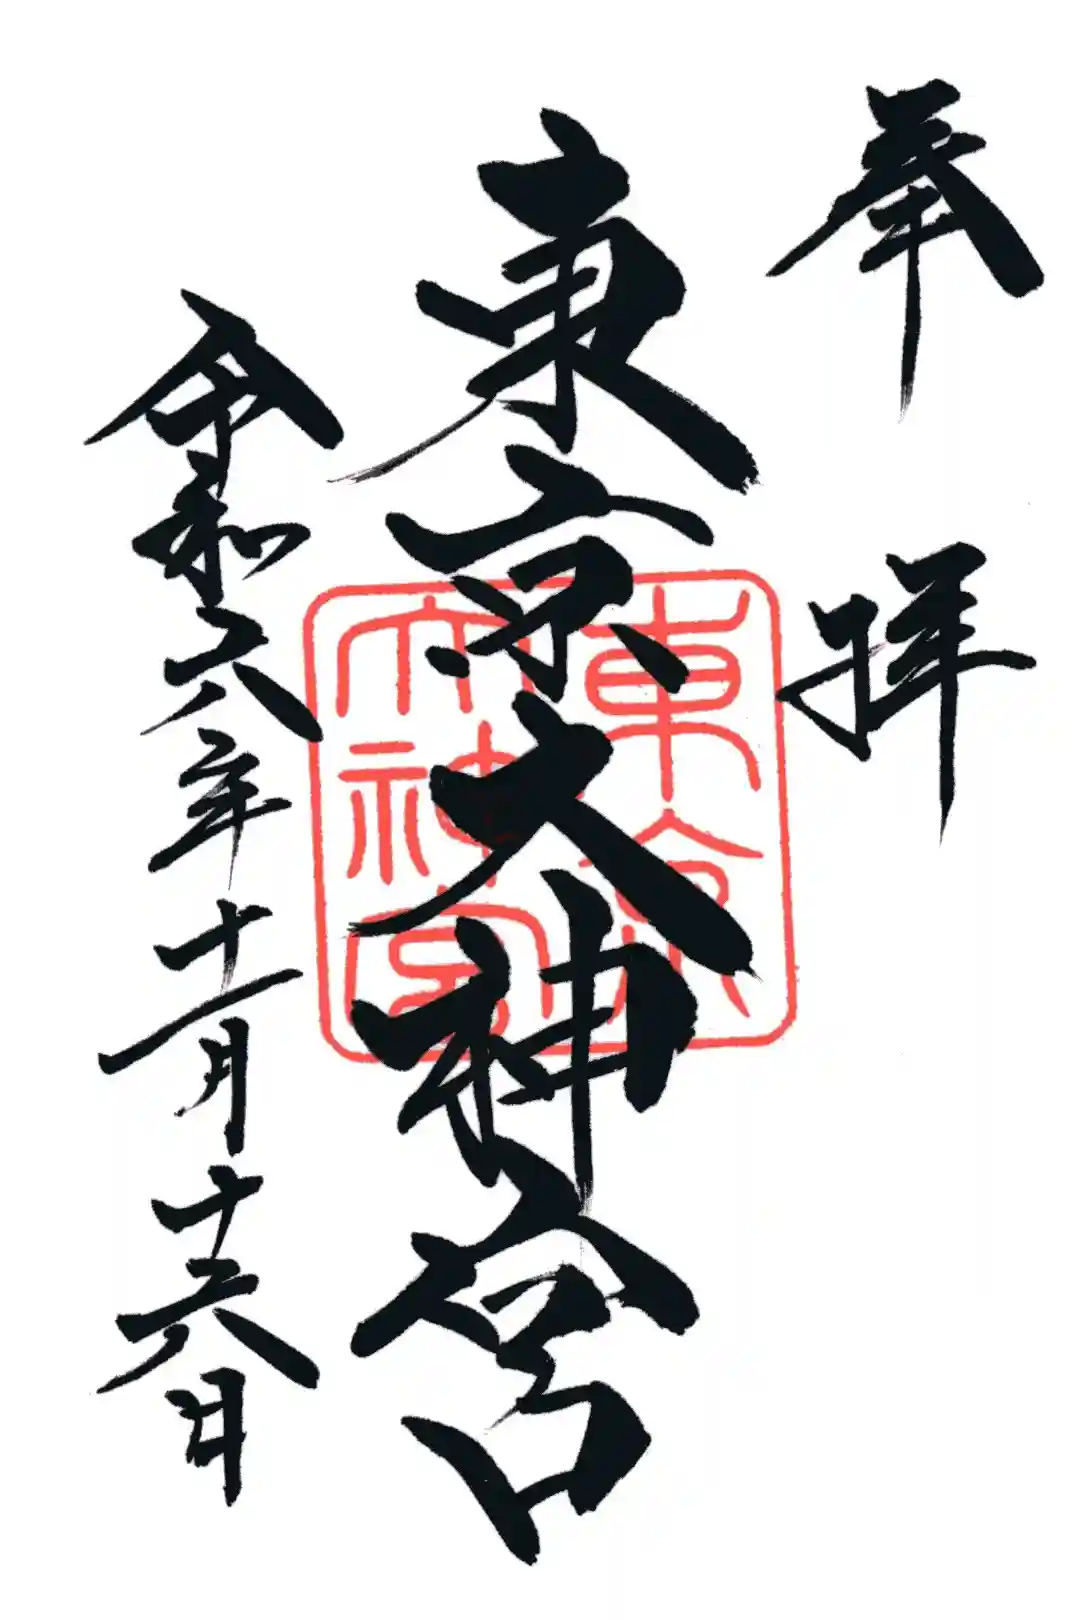 奉拝
東京大神宮
東京
大神宮
令和六年十一月十六日